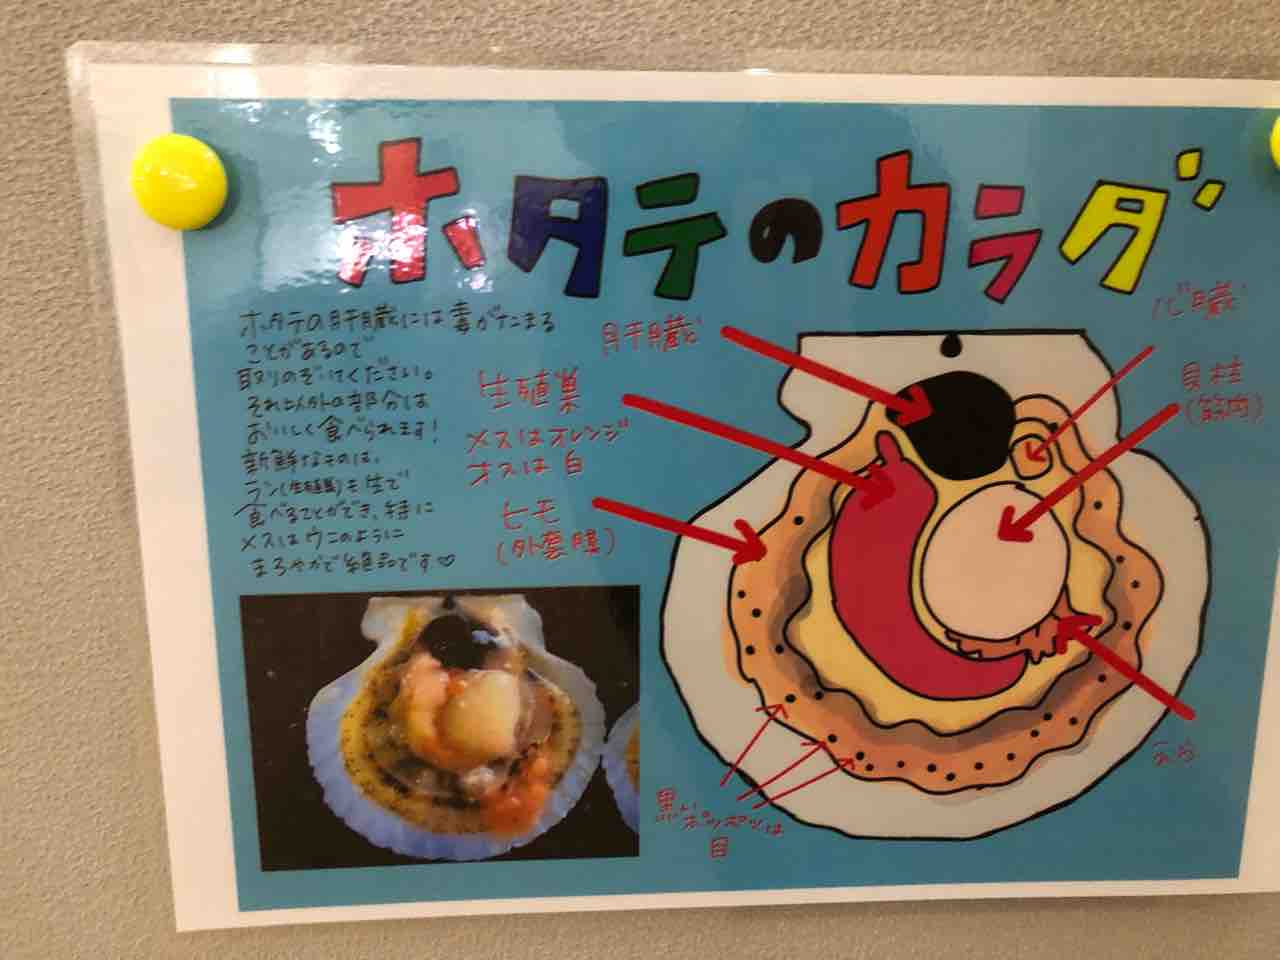 ホタテのカラダ
ホタテの肝臓には毒がたまる
ことがあるので
取りのぞいてください。
それ以外の部分は
おいしく食べられます!
新鮮なものは、
ラン(生殖巣)も生で
食べることができ、特に
メスはウニのように
まろやかで絶品です♡
肝臓
生殖巣
メスはオレンジ
オスは白
ヒモ
(外套膜)
心臓
貝柱
(筋肉)
黒いポツポツは
目